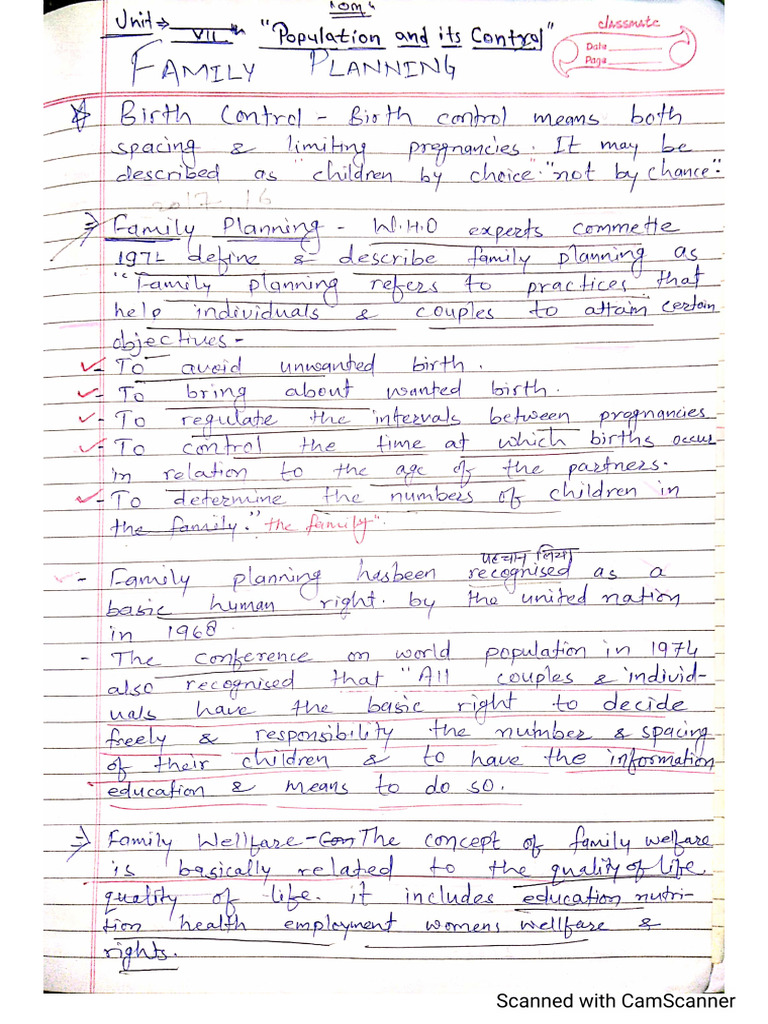 "OM"
Unit → VII "Population and its Control"
classmate
Date
Page
FAMILY PLANNING
Birth Control - Birth control means both
spacing & limiting pregnancies. It may be
described as "children by choice" "not by chance".
2017, 16
⇒ Family Planning - W.H.O experts commette
1971 define & describe family planning as
"Family planning refers to practices that
help individuals & couples to attain certain
objectives -
✓- To avoid unwanted birth.
✓- To bring about wanted birth.
✓- To regulate the intervals between pregnancies
✓- To control the time at which births occur
in relation to the age of the partners.
✓- To determine the numbers of children in
the family." "the family".
पहचान लिया
✓- Family planning hasbeen recognised as a
basic human right. by the united nation
in 1968
- The conference on world population in 1974
also recognised that "All couples & individ-
uals have the basic right to decide
freely & responsibility the number & spacing
of their children & to have the information
education & means to do so.
⇒ Family Wellfare - Con The concept of family welfare
is basically related to the quality of life
quality of life. it includes education nutri-
tion health employment womens wellfare &
rights.
Scanned with CamScanner